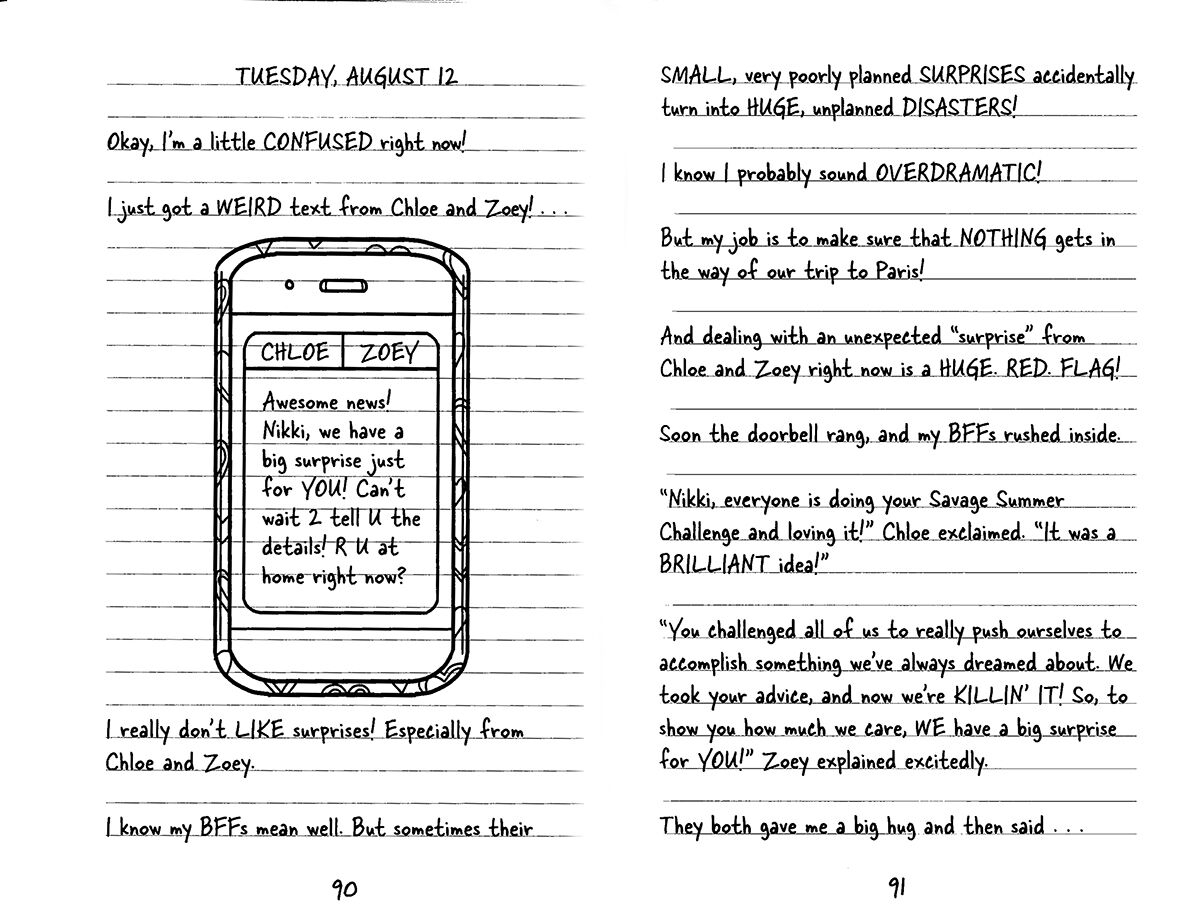 TUESDAY, AUGUST 12
Okay, I'm a little CONFUSED right now!
I just got a WEIRD text from Chloe and Zoey! . . .
CHLOE ZOEY
Awesome news!
Nikki, we have a
big surprise just
for YOU! Can't
wait 2 tell U the
details! R U at
home right now?
I really don't LIKE surprises! Especially from
Chloe and Zoey.
I know my BFFs mean well. But sometimes their
90
SMALL, very poorly planned SURPRISES accidentally
turn into HUGE, unplanned DISASTERS!
I know I probably sound OVERDRAMATIC!
But my job is to make sure that NOTHING gets in
the way of our trip to Paris!
And dealing with an unexpected “surprise” from
Chloe and Zoey right now is a HUGE. RED. FLAG!
Soon the doorbell rang, and my BFFs rushed inside.
“Nikki, everyone is doing your Savage Summer
Challenge and loving it!” Chloe exclaimed. “It was a
BRILLIANT idea!”
“You challenged all of us to really push ourselves to
accomplish something we've always dreamed about. We
took your advice, and now we're KILLIN' IT! So, to
show you how much we care, WE have a big surprise
for YOU!” Zoey explained excitedly.
They both gave me a big hug and then said . . .
91